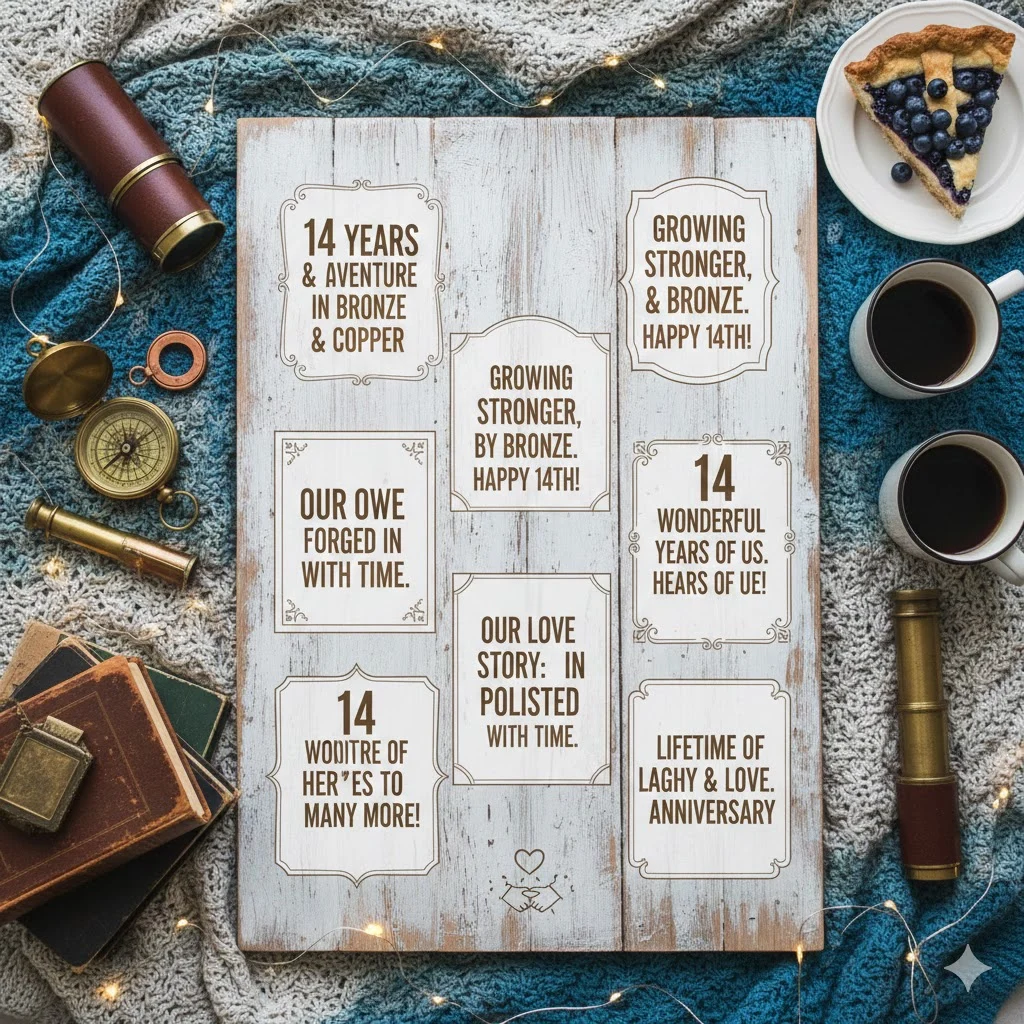 14 YEARS
& AVENTURE
IN BRONZE
& COPPER
GROWING
STRONGER,
& BRONZE.
HAPPY 14TH!
GROWING
STRONGER,
BY BRONZE.
HAPPY 14TH!
OUR OWE
FORGED IN
WITH TIME.
14
WONDERFUL
YEARS OF US.
HEARS OF UE!
OUR LOVE
STORY: IN
POLISTED
WITH TIME.
14
WODITRE OF
HER"ES TO
MANY MORE!
LIFETIME OF
LAGHY & LOVE.
ANNIVERSARY